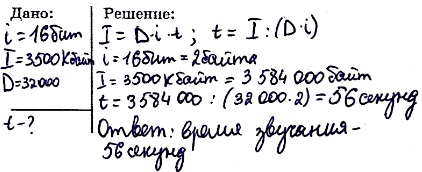 Дано:
i = 16 бит
I = 3500 Кбайт
D = 32000
t - ?
Решение:
I = D · i · t ; t = I : (D · i)
i = 16 бит = 2 байта
I = 3500 Кбайт = 3 584 000 байт
t = 3 584 000 : (32 000 · 2) = 56 секунд
Ответ: время звучания -
56 секунд